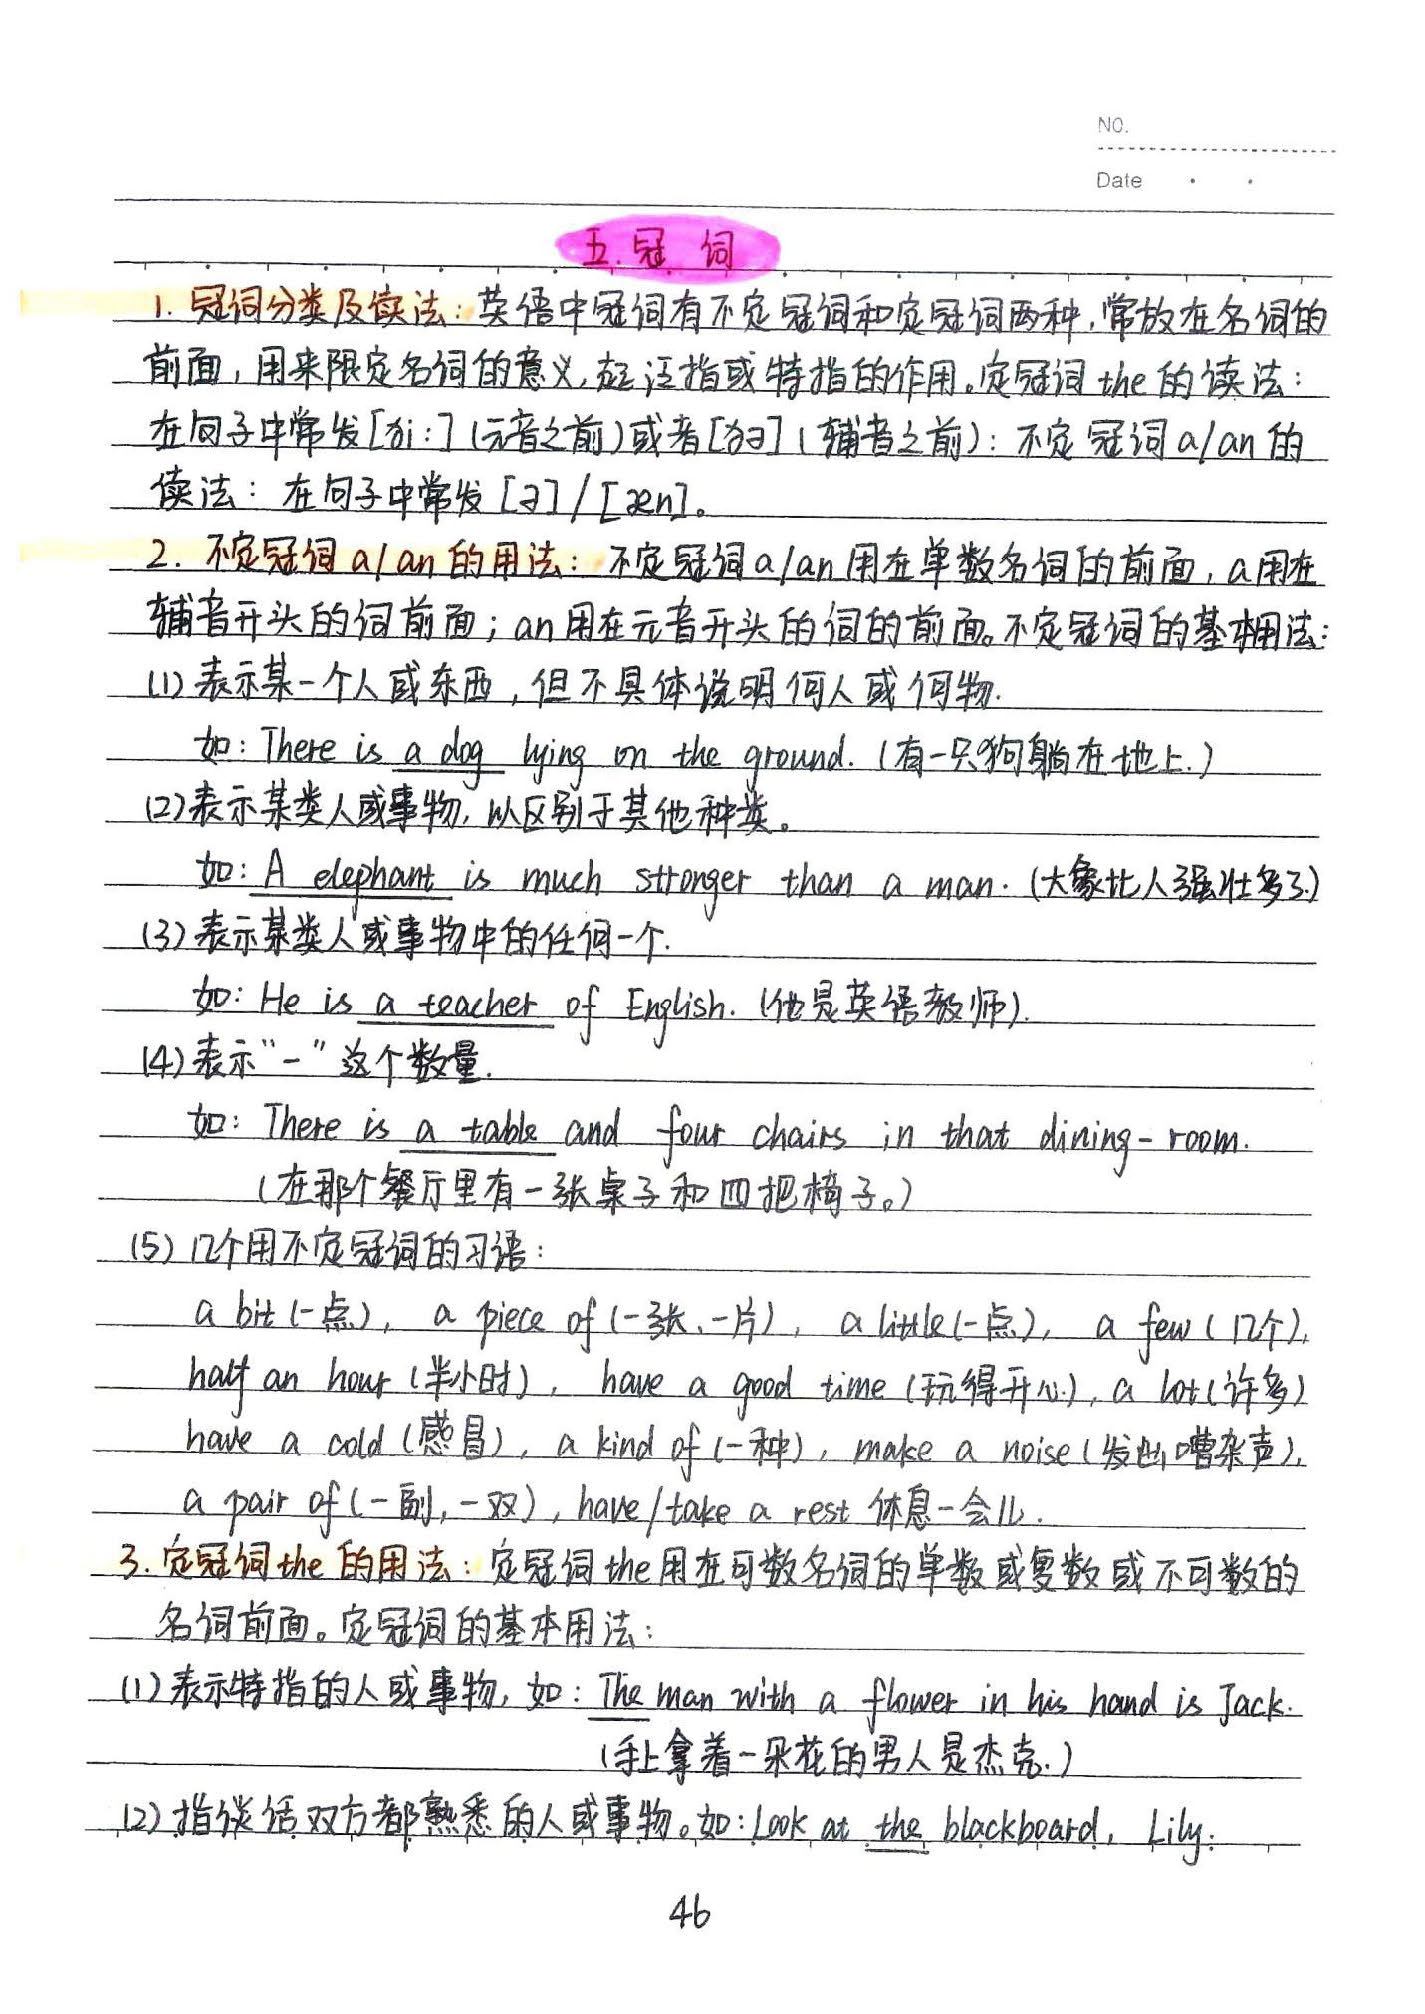 NO.
Date
五.冠 词
1. 冠词分类及读法：英语中冠词有不定冠词和定冠词两种,常放在名词的
前面,用来限定名词的意义,起泛指或特指的作用。定冠词 the 的读法：
在句子中常发[ði:](元音之前)或者[ðə](辅音之前)：不定冠词a/an的
读法：在句子中常发[ə]/[æn]。
2. 不定冠词a/an的用法：不定冠词a/an用在单数名词的前面,a用在
辅音开头的词前面；an用在元音开头的词的前面。不定冠词的基本用法：
(1)表示某一个人或东西,但不具体说明何人或何物.
如：There is a dog lying on the ground.(有一只狗躺在地上.)
(2)表示某类人或事物,以区别于其他种类。
如：A elephant is much stronger than a man.(大象比人强壮多了)
(3)表示某类人或事物中的任何一个.
如：He is a teacher of English.(他是英语教师).
(4)表示“一”这个数量.
如：There is a table and four chairs in that dining-room.
(在那个餐厅里有一张桌子和四把椅子。)
(5)几个用不定冠词的习语：
a bit(一点), a piece of(一张、一片), a little(一点), a few(几个),
half an hour(半小时), have a good time(玩得开心), a lot(许多)
have a cold(感冒), a kind of(一种), make a noise(发出嘈杂声),
a pair of(一副,一双), have/take a rest 休息一会儿.
3. 定冠词the的用法：定冠词the用在可数名词的单数或复数或不可数的
名词前面。定冠词的基本用法：
(1)表示特指的人或事物,如：The man with a flower in his hand is Jack.
(手上拿着一朵花的男人是杰克.)
(2)指谈话双方都熟悉的人或事物。如：Look at the blackboard, Lily.
46